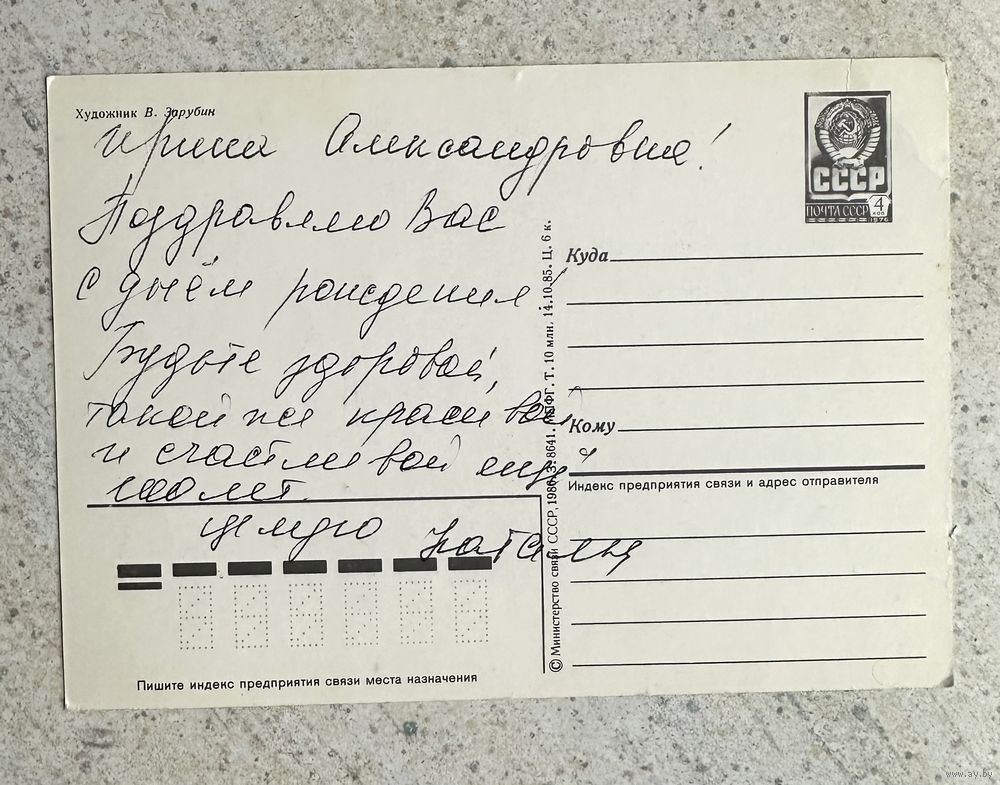 Художник В. Зарубин
Ирина Александровна!
Поздравляю Вас
с днём рождения
Будьте здоровой,
такой же красивой
и счастливой ещё
100 лет.
целую Наталья
СССР
ПОЧТА СССР 4 КОП
1976
Куда
Кому
Индекс предприятия связи и адрес отправителя
© Министерство связи СССР, 1986. З. 8641. МПФГ. Т. 10 млн. 14.10.85. Ц. 6 к.
Пишите индекс предприятия связи места назначения
www.ay.by